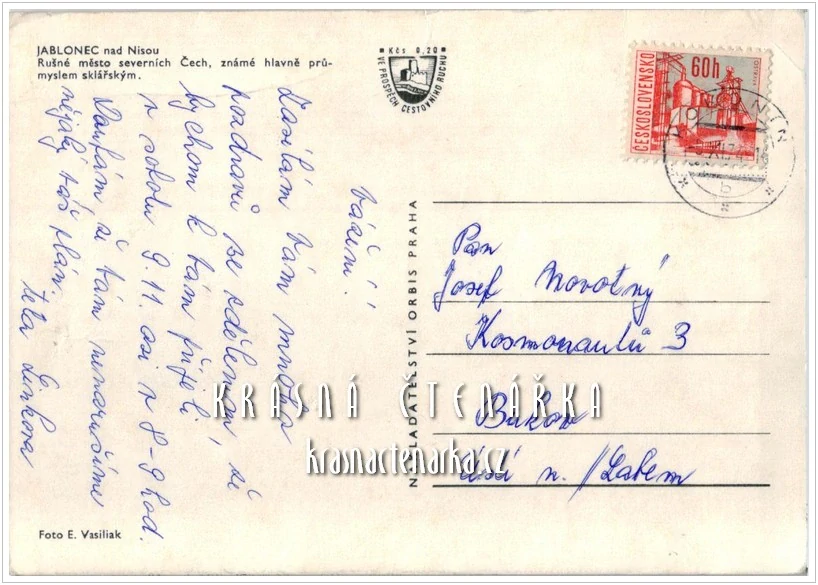 JABLONEC nad Nisou
Rušné město severních Čech, známé hlavně prů-
myslem sklářským.
Kčs 0,20
VE PROSPĚCH CESTOVNÍHO RUCHU
60h
ČESKOSLOVENSKO
Vážení!
Zasílám Vám mnoho
pozdravů se sdělením, že
bychom k Vám přijeli
v sobotu 9.11. asi v 8-9 hod.
Doufám že Vám nenarušíme
nějaký váš plán.
NAKLADATELSTVÍ ORBIS PRAHA
Pan
Josef Novotný
Kosmonautů 3
Bukov
Ústí n./Labem
KRÁSNÁ ČTENÁŘKA
krasnactenarka.cz
Foto E. Vasiliak